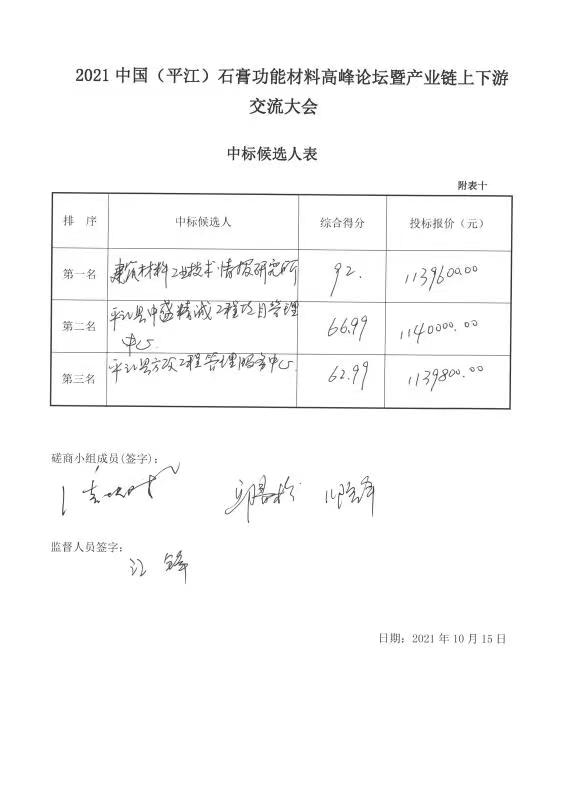 2021中国（平江）石膏功能材料高峰论坛暨产业链上下游
交流大会
中标候选人表
附表十
排 序 中标候选人 综合得分 投标报价（元）
第一名 建筑材料工业技术情报研究所 92. 1139600.00
第二名 平江县中盛精诚工程项目管理 66.99 1140000.00
中心
第三名 平江县方欣工程管理服务中心 62.99 1139800.00
磋商小组成员(签字):
监督人员签字:
江 锋
日期: 2021 年 10 月 15 日